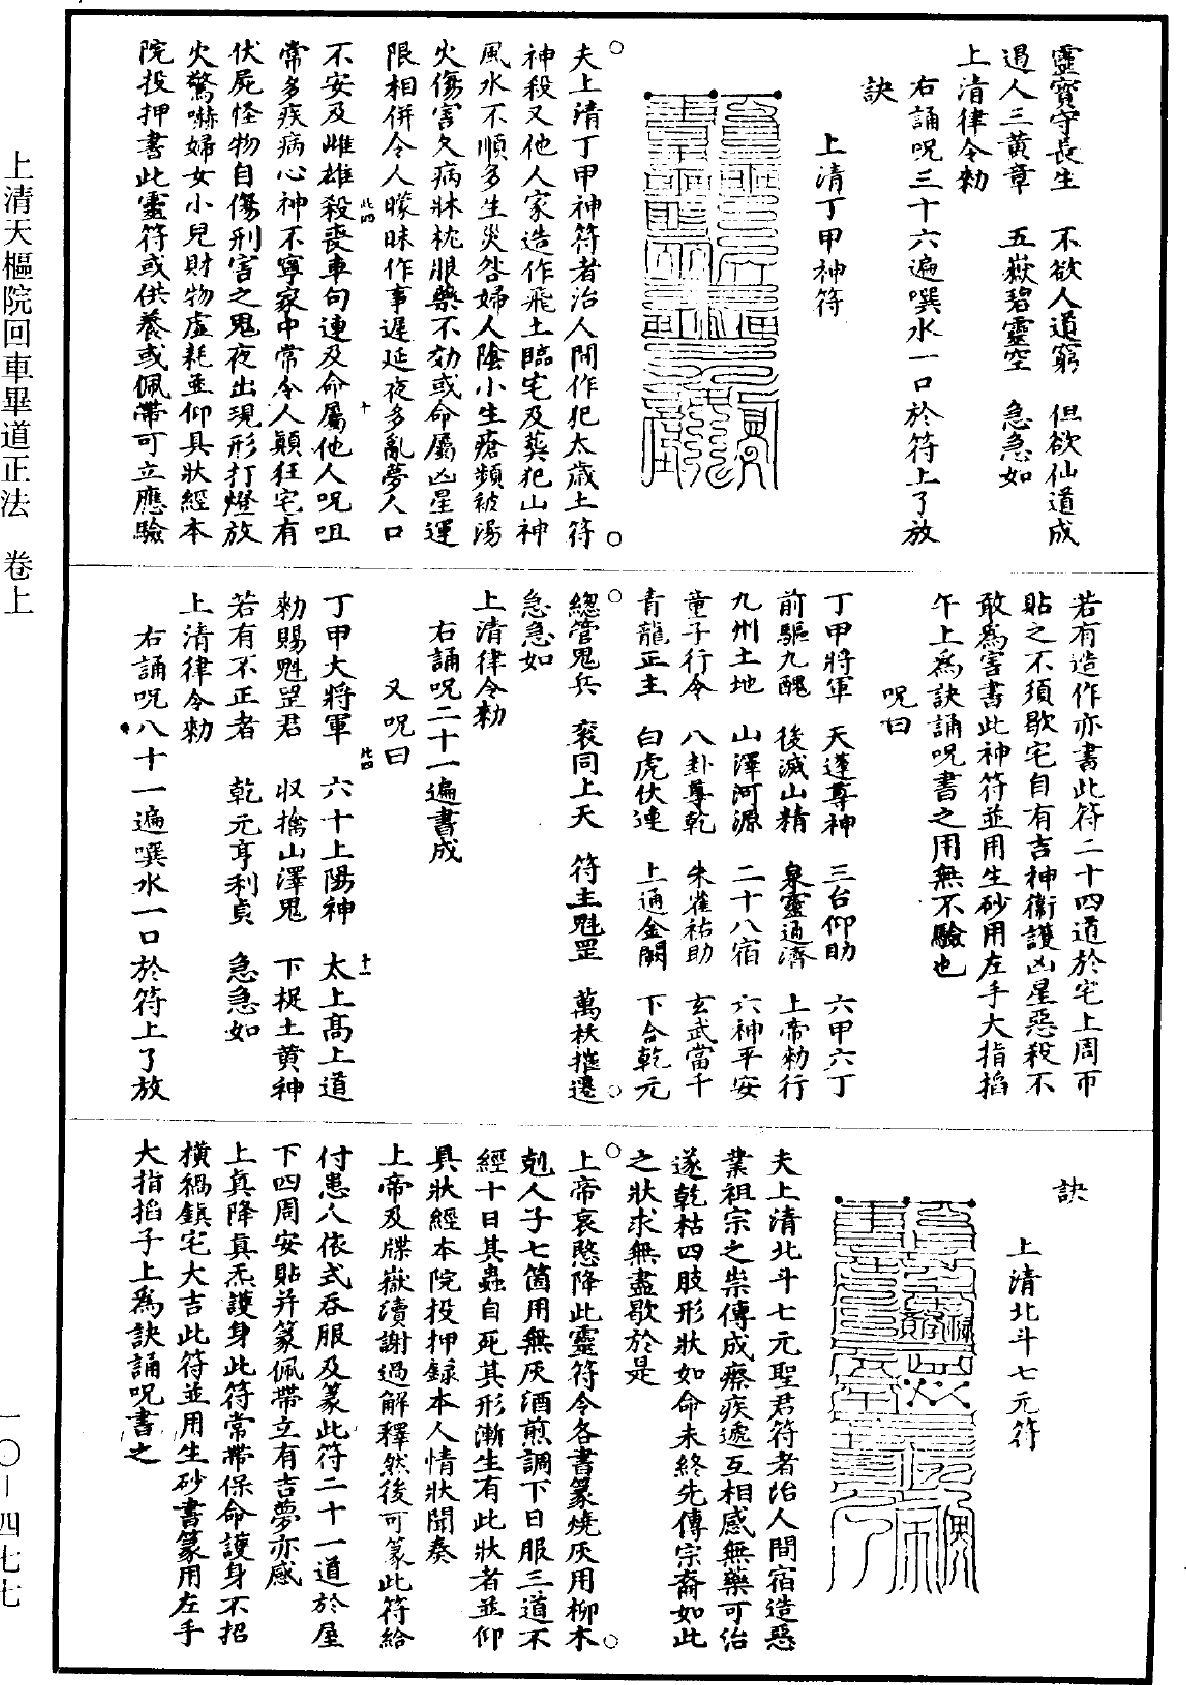 靈寶守長生　不欲人道窮　但欲仙道成
過人三黄章　五嶽碧靈空　急急如
上清律令勑
右誦呪三十六遍噀水一口於符上了放
訣
上清丁甲神符
夫上清丁甲神符者治人間作犯太歲土符
神殺又他人家造作飛土臨宅及葬犯山神
風水不順多生災咎婦人陰小生瘡頻被湯
火傷害久病牀枕服藥不効或命屬凶星運
限相併令人矇昧作事遲延夜多亂夢人口
不安及雌雄殺喪車勾連及命屬他人呪咀
常多疾病心神不寧家中常令人顛狂宅有
伏屍怪物自傷刑害之鬼夜出現形打燈放
火驚嚇婦女小兒財物虛耗並仰具狀經本
院投押書此靈符或供養或佩帶可立應驗
若有造作亦書此符二十四道於宅上周帀
貼之不須歇宅自有吉神衞護凶星惡殺不
敢爲害書此神符並用生砂用左手大指掐
午上爲訣誦呪書之用無不驗也
呪曰
丁甲將軍　天蓬尊神　三台仰助　六甲六丁
前驅九醜　後滅山精　泉靈通濟　上帝勑行
九州土地　山澤河源　二十八宿　六神平安
童子行令　八卦尊乾　朱雀祐助　玄武當千
青龍正主　白虎伏連　上通金闕　下合乾元
總管鬼兵　衮同上天　符主魁罡　萬袄摧遷
急急如
上清律令勑
右誦呪二十一遍書成
又呪曰
丁甲大將軍　六十上陽神　太上高上道
勑賜魁罡君　收擒山澤鬼　下捉土黄神
若有不正者　乾元亨利貞　急急如
上清律令勑
右誦呪八十一遍噀水一口於符上了放
訣
上清北斗七元符
夫上清北斗七元聖君符者治人間宿造惡
業祖宗之祟傳成瘵疾遞互相感無藥可治
遂乾枯四肢形狀如命未終先傳宗裔如此
之狀求無盡歇於是
上帝哀愍降此靈符令各書篆燒灰用柳木
剋人子七箇用無灰酒煎調下日服三道不
經十日其蟲自死其形漸生有此狀者並仰
具狀經本院投押録本人情狀聞奏
上帝及牒嶽瀆謝過解釋然後可篆此符給
付患人依式吞服及篆此符二十一道於屋
下四周安貼并篆佩帶立有吉夢亦感
上真降真炁護身此符常帶保命護身不招
橫禍鎮宅大吉此符並用生砂書篆用左手
大指掐子上爲訣誦呪書之
上清天樞院回車畢道正法　卷上
一〇—四七七